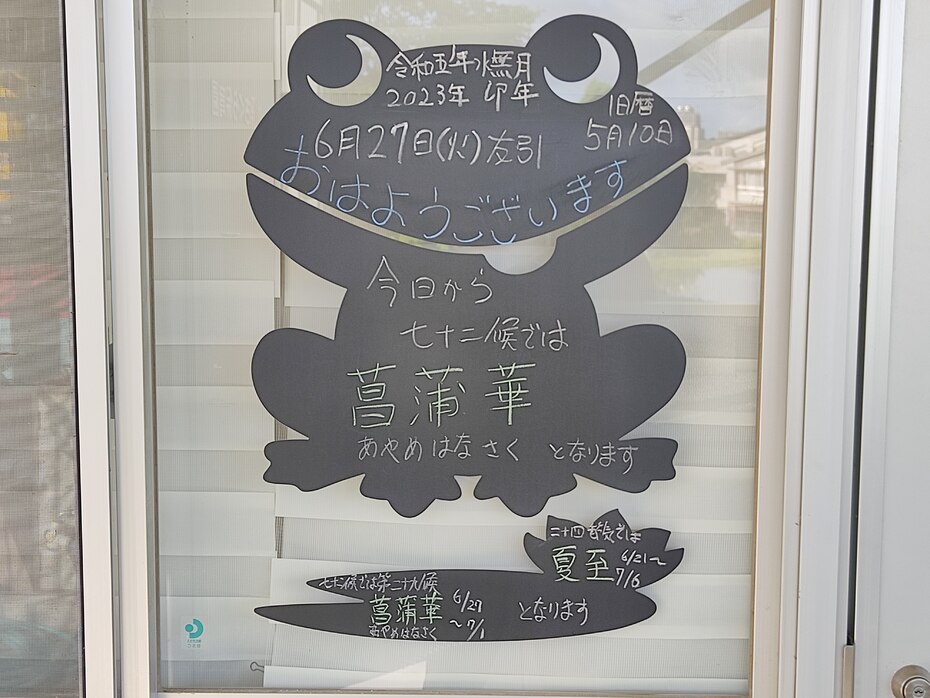 令和五年水無月
2023年 卯年
旧暦
5月10日
6月27日(火)友引
おはようございます
今日から
七十二候では
菖蒲華
あやめはなさく となります
二十四節気では
夏至 6/21〜
7/6
七十二候では第二十九候
菖蒲華 6/27
〜7/1
あやめはなさく
となります